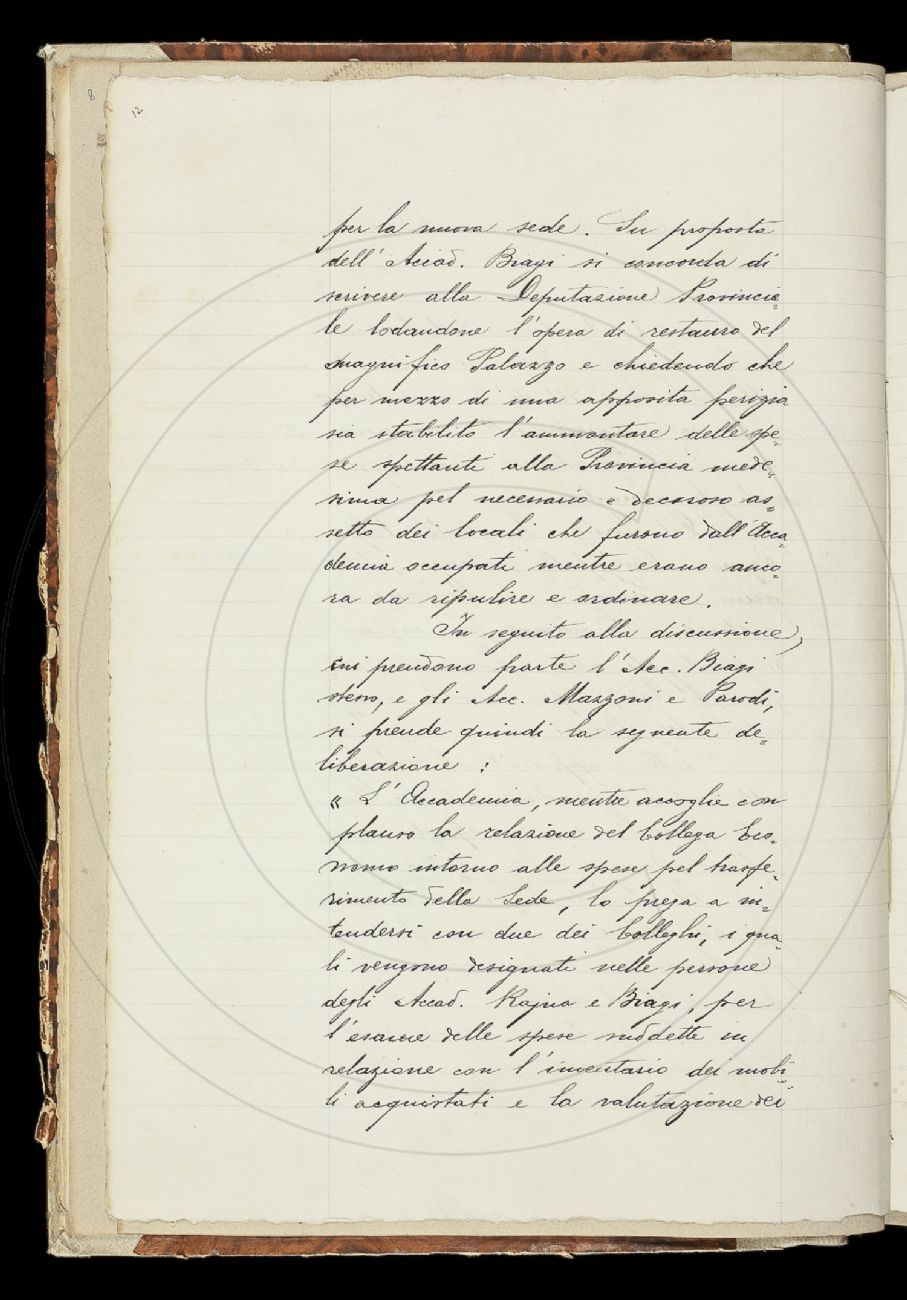 8
12
per la nuova sede. Su proposta
dell' Accad. Biagi si concorda di
scrivere alla Deputazione Provincia=
le lodandone l'opera di restauro del
magnifico Palazzo e chiedendo che
per mezzo di una apposita perizia
sia stabilito l'ammontare delle spe=
se spettanti alla Provincia mede=
sima pel necessario e decoroso as=
setto dei locali che furono dall'Acca=
demia occupati mentre erano anco=
ra da ripulire e ordinare.
In seguito alla discussione,
cui prendono parte l'Acc. Biagi
stesso, e gli Acc. Mazzoni e Parodi,
si prende quindi la seguente de=
liberazione :
« L' Accademia, mentre accoglie con
plauso la relazione del Collega Eco=
nomo intorno alle spese pel trasfe=
rimento della Sede, lo prega a in=
tendersi con due dei Colleghi, i qua=
li vengono designati nelle persone
degli Accad. Rajna e Biagi, per
l'esame delle spese suddette in
relazione con l'inventario dei mobi=
li acquistati e la valutazione dei